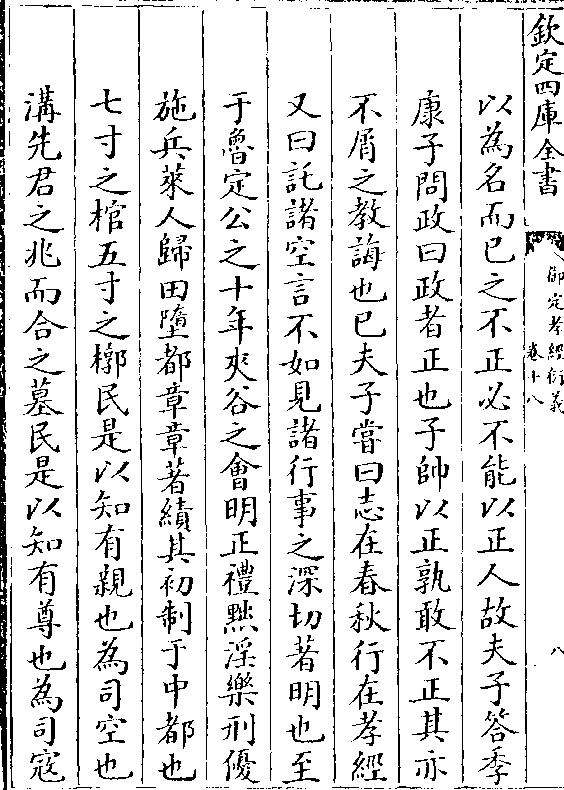 欽定四庫全書
御定孝經衍義
卷十八
八
以為名而已之不正必不能以正人故夫子答季
康子問政曰政者正也子帥以正孰敢不正其亦
不屑之教誨也已夫子嘗曰志在春秋行在孝經
又曰託諸空言不如見諸行事之深切著明也至
于魯定公之十年夾谷之會明正禮黜淫樂刑優
施兵萊人歸田墮都章章著績其初制于中都也
七寸之棺五寸之槨民是以知有親也為司空也
溝先君之兆而合之墓民是以知有尊也為司寇